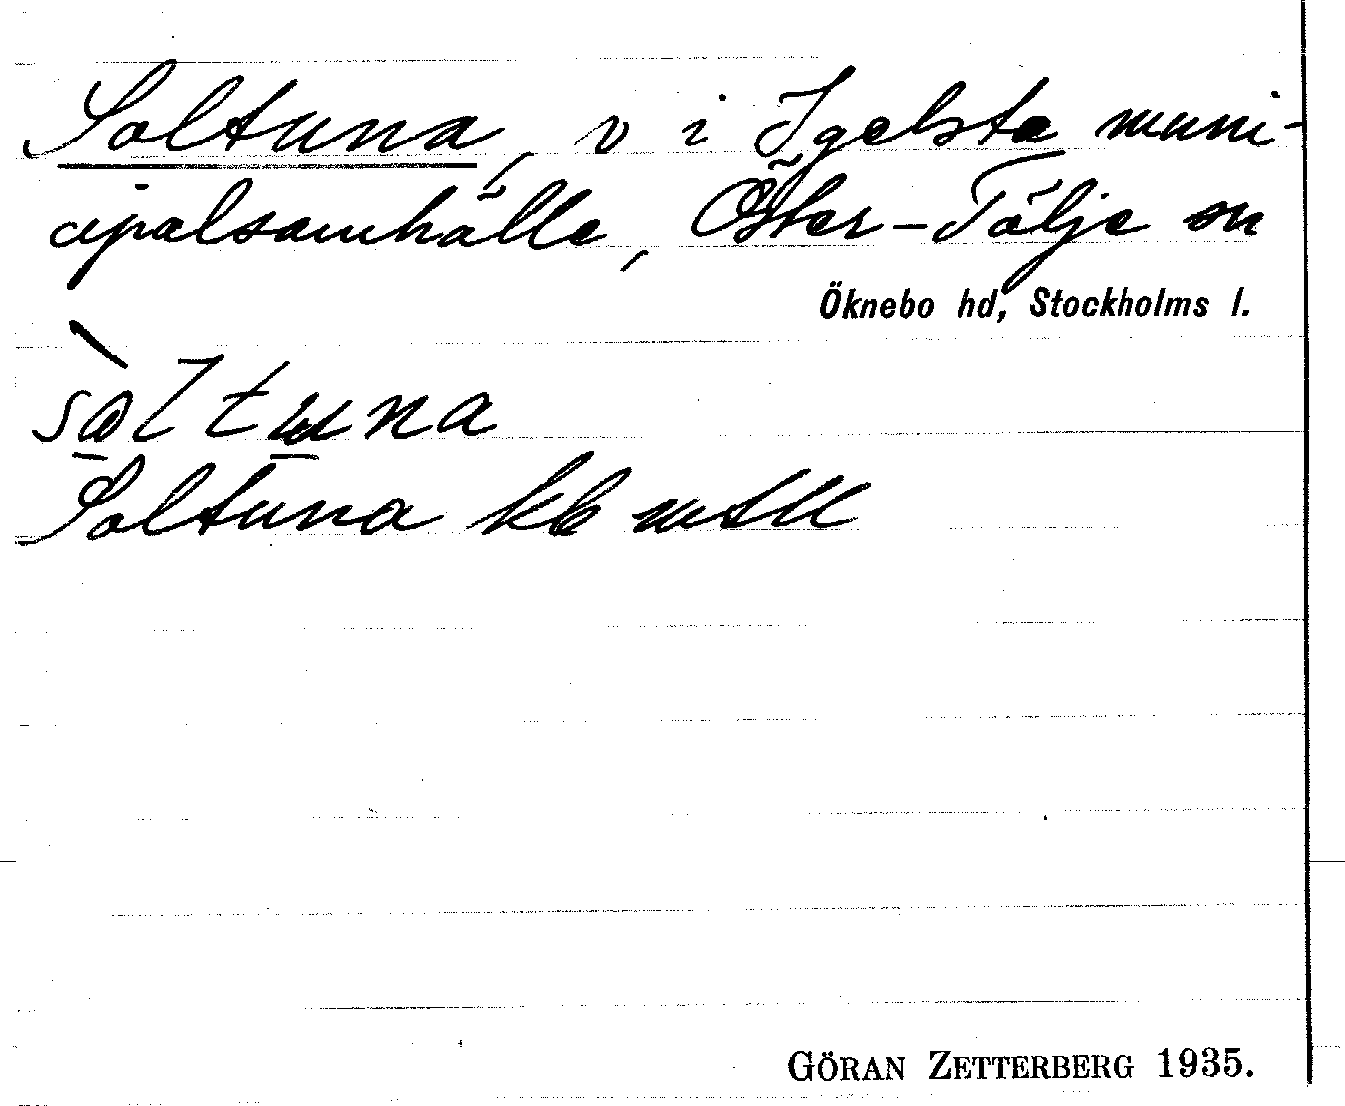 Soltuna, v i Igelsta muni-
cipalsamhälle, Öster-Tälje sn
Öknebo hd, Stockholms l.
Soltuna kb mtll
GÖRAN ZETTERBERG 1935.